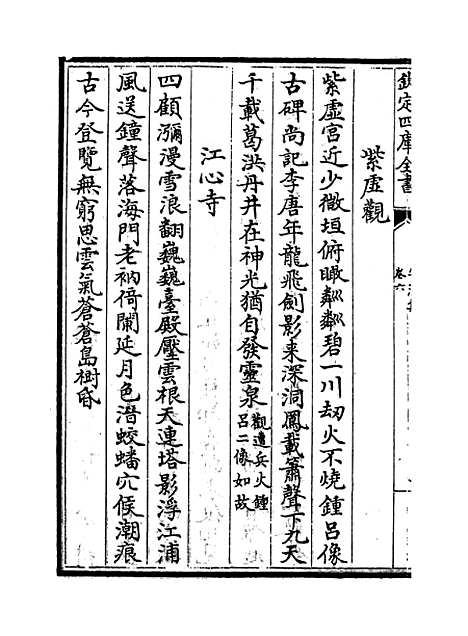 欽定四庫全書
卷六
紫虛觀
紫虛宮近少微垣俯瞰粼粼碧一川劫火不燒鍾呂像
古碑尚記李唐年龍飛劍影來深洞鳳載簫聲下九天
千載葛洪丹井在神光猶自發靈泉觀遭兵火鍾
呂二像如故
江心寺
四顧瀰漫雪浪翻巍巍臺殿壓雲根天連塔影浮江浦
風送鐘聲落海門老衲倚闌延月色潛蛟蟠穴候潮痕
古今登覽無窮思雲氣蒼蒼島樹昏